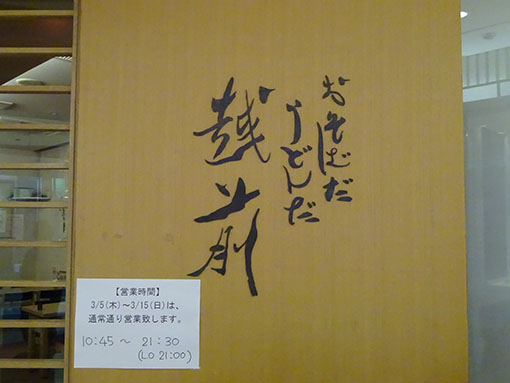 おそばだ
うどんだ
越前
【営業時間】
3/5(木)～3/15(日)は、
通常通り営業致します。
10:45 ～ 21:30
(LO 21:00)